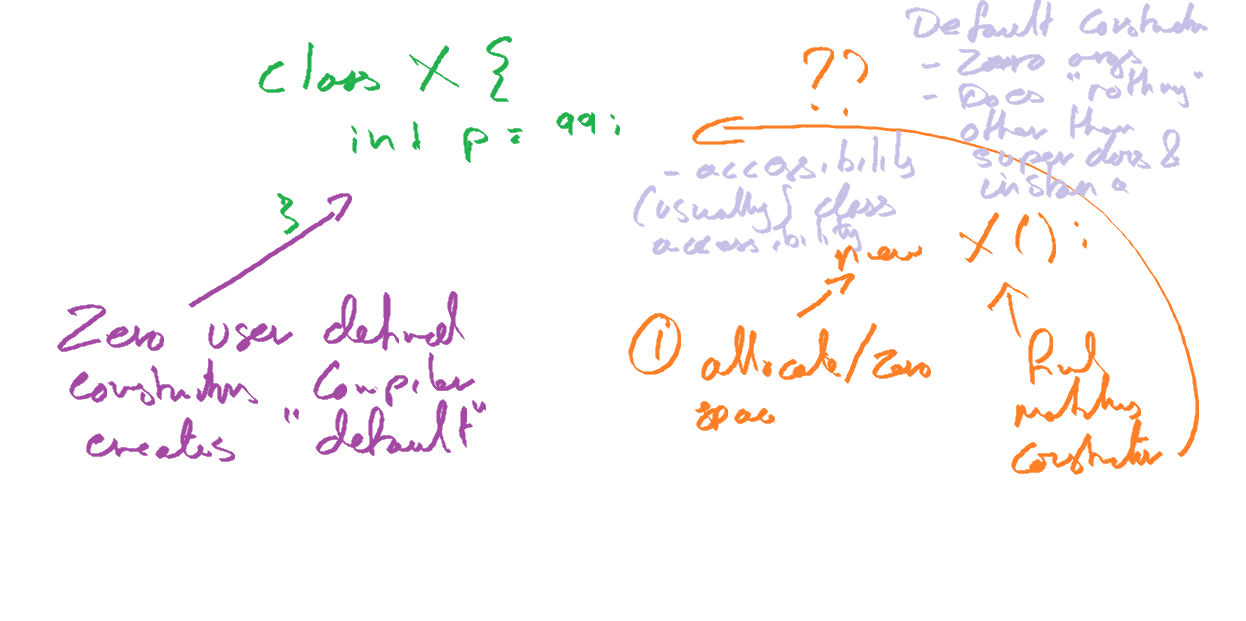 class X {
int p = 99;
}
Zero user defined
constructors Compiler
creates "default"
??
Default Constructor
- Zero args
- Does "nothing"
other than
super ctors &
instance
- accessibility
(usually) class
accessibility
new X();
① allocate/zero
space
find
matching
constructor